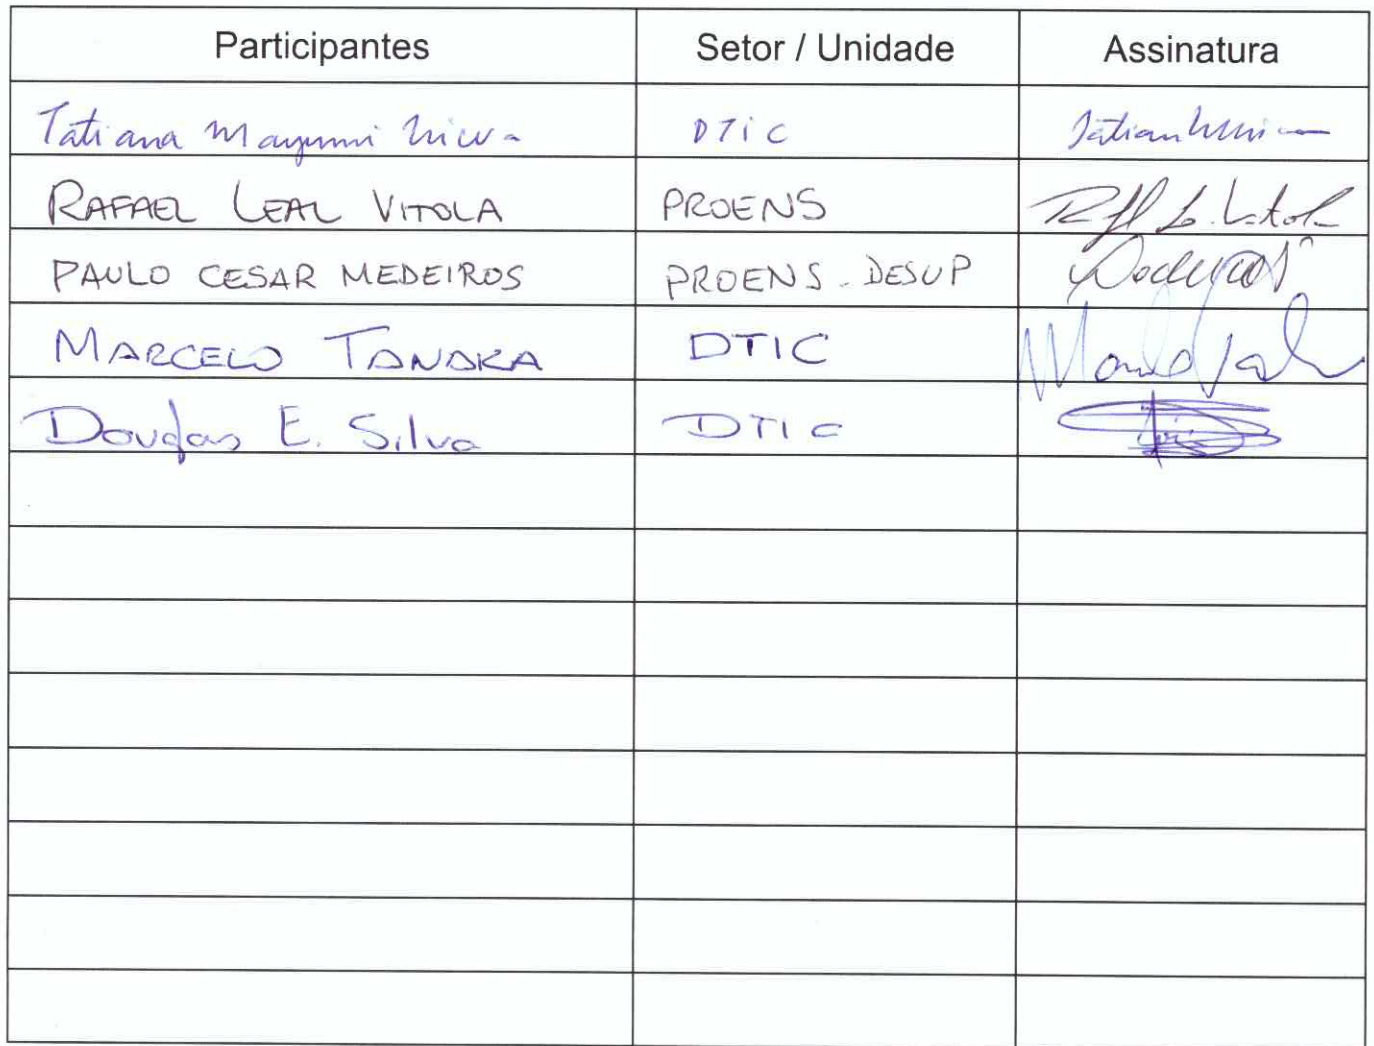 Participantes Setor / Unidade Assinatura
Tatiana Mayumi Niwa DTIC
RAFAEL LEAL VITOLA PROENS
PAULO CESAR MEDEIROS PROENS - DESUP
MARCELO TANAKA DTIC
Douglas E. Silva DTIC